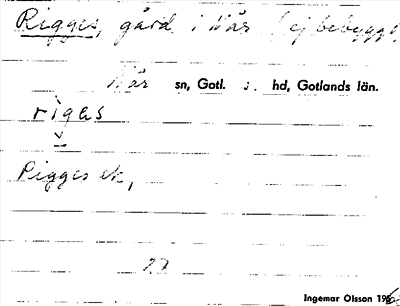 Rigges, gård i När (ej bebyggd)
När sn, Gotl. s. hd, Gotlands län.
rigas
Rigges ek,
27
Ingemar Olsson 196